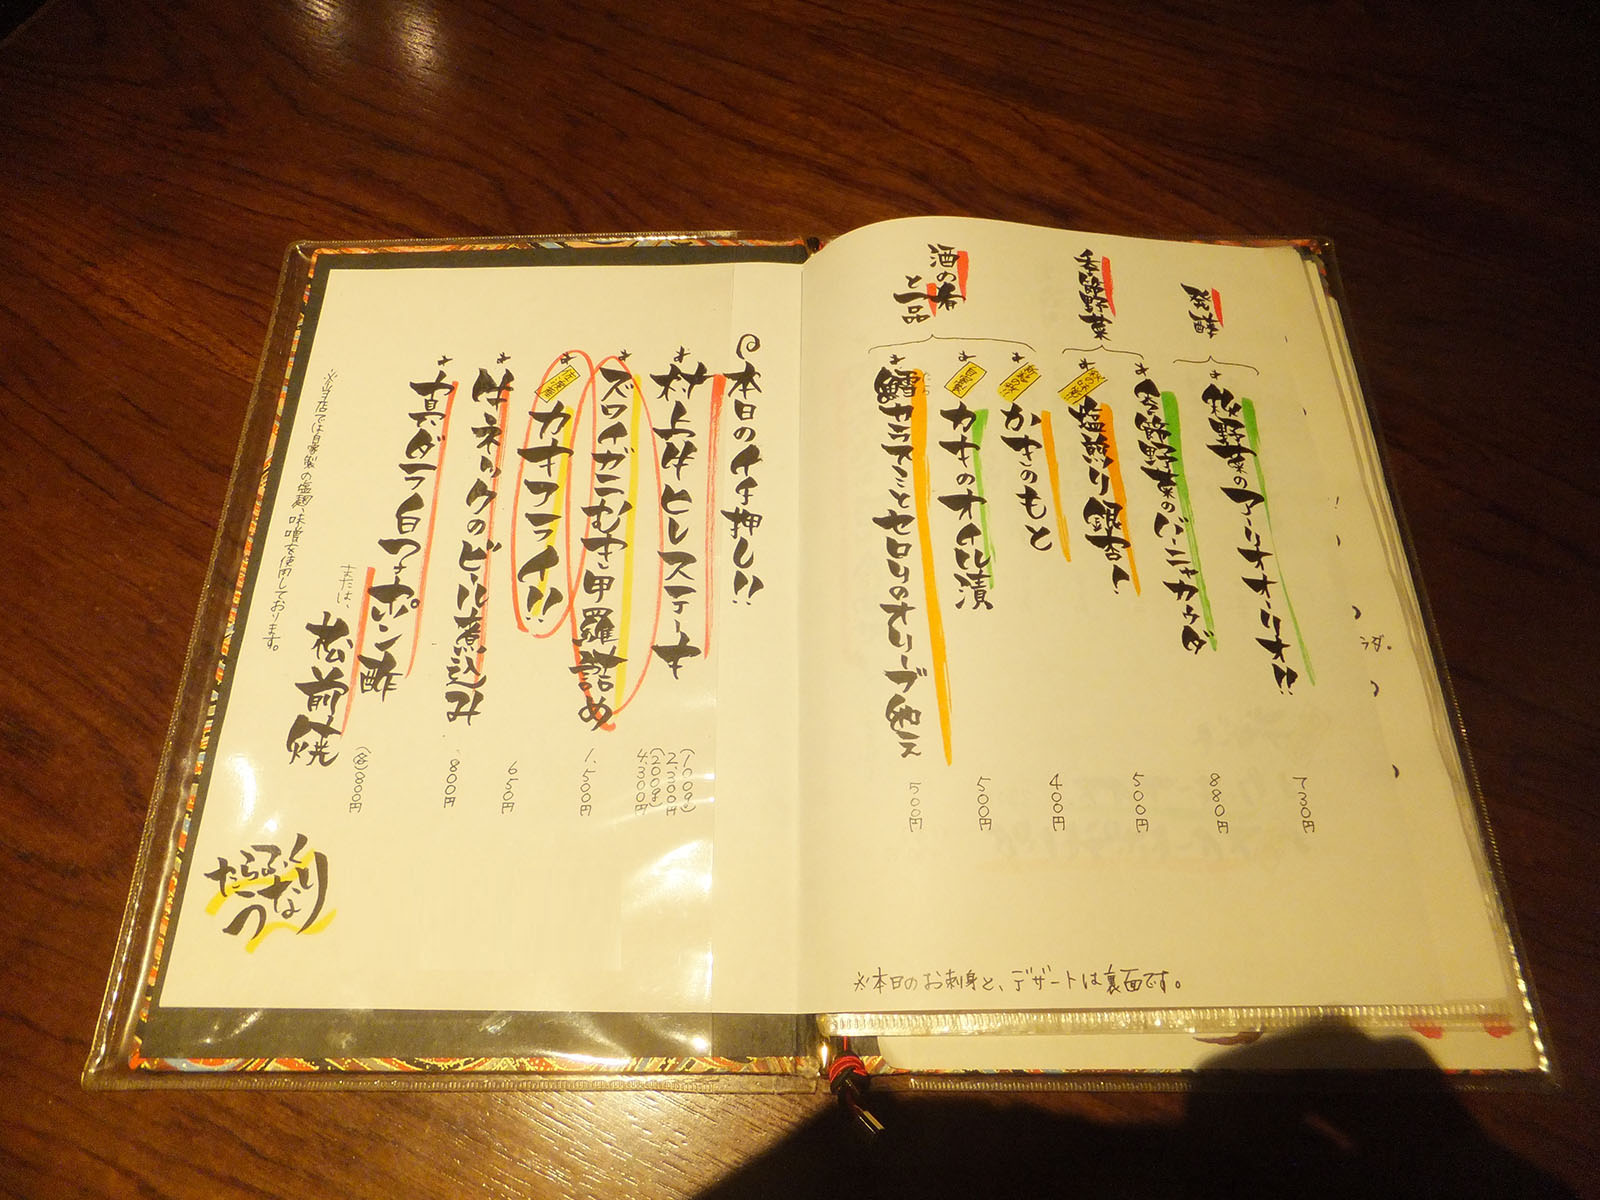 発酵
季節野菜
酒の肴
と一品
野菜のアーリオオーリオ!!
730円
季節野菜のバーニャカウダ
880円
塩煎り銀杏!
500円
かきのもと
400円
自家製
カキのオイル漬
500円
セロリのオリーブ和え
500円
※本日のお刺身と、デザートは裏面です。
本日のイチ押し!!
村上牛ヒレステーキ
(100g)
2,300円
(200g)
4,300円
ズワイガニむき甲羅詰め
1,500円
佐渡産
カキフライ!!
650円
牛ネックのビール煮込み
800円
真ダラ白子ポン酢
または、
松前焼
(各)800円
※当店では自家製の塩麹、味噌を使用しております。
たらふく